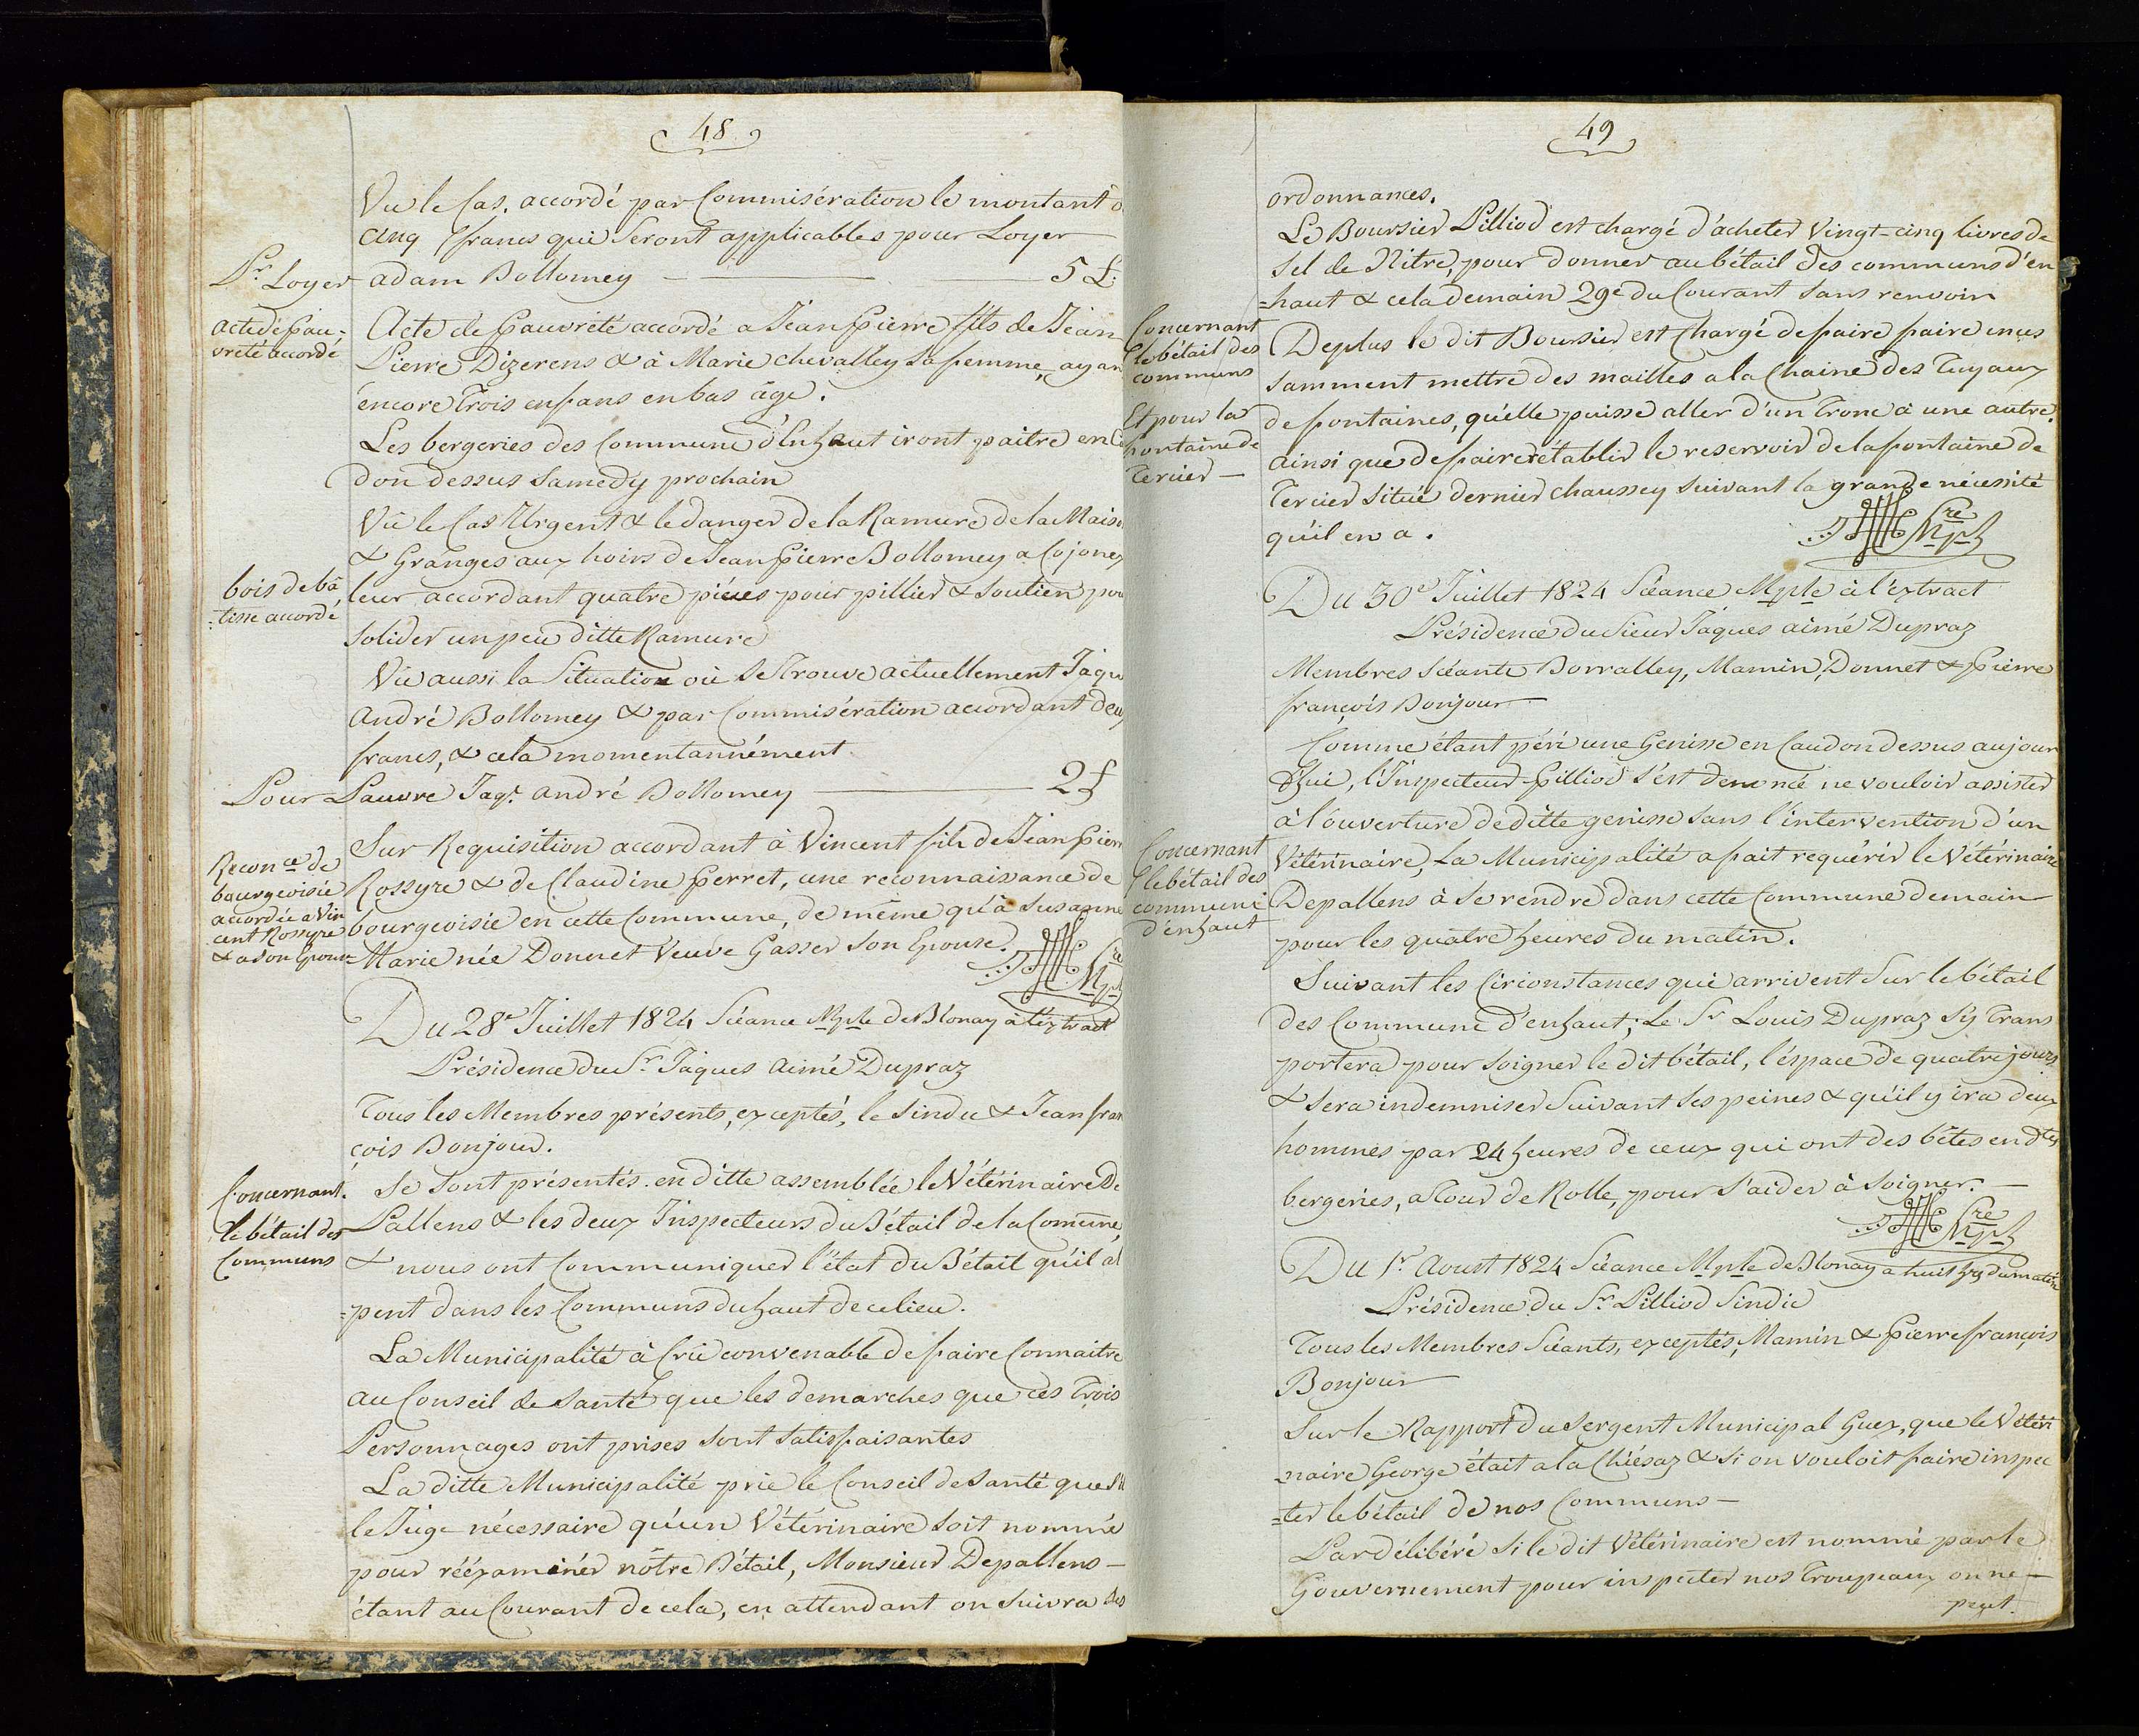 48
Vu le Cas. accordé par Commisération le montant
cinq francs qui Seront applicables pour Loyer
Pr. Loyer adam Bollomey 5 L.
acte de pau-
vreté accordé
Acte de pauvreté accordé a Jean pierre fils de Jean
Pierre Dizerens & à Marie chevalley Sa femme, ayan
éncore Trois enfans en bas äge.
Les bergeries des Commune d'Enhaut iront paitre en
don dessus Samedy prochain
bois de bâ
-tisse accordé
Vû le Cas Urgent & le danger de la Ramure de la Mais
& Granges aux hoirs de Jean pierre Bollomey a Cojonex
leur accordant quatre piéces pour pillier & Soutien pou
Solider un peu ditte Ramure
Vû aussi la Situation oû Se Trouve actuellement Jaqu
André Bollomey & par Commisération accordant deux
francs, & cela momentannément
Pour Pauvre Jaqs. andré Bollomey 2 f
Reconce de
bourgeoisie
accordée a Vin
cent Rossyre
& a Son Epouse
Sur Requisition accordant à Vincent fils de Jean pierr
Rossyre & de Claudine Perret, une reconnaissance de
bourgeoisie en cette Commune, de même qu'à Susanne
Marie née Donnet Veuve Gasser Son Epouse.
Du 28e. Juillet 1824 Séance Mple de Blonay à l'extract
Présidence du Sr. Jâques Aimé Dupraz
Tous les Membres présents, exceptés, le Sindic & Jean fran
çois Bonjour.
Concernant
le bétail des
Communs
Se Sont présentés en ditte assemblée le Vétérinaire De
Pallens & les deux Inspecteurs du Bétail de la Comune,
& nous ont Communiquer l'état du Bétail qu'il al
=pent dans les Communs du haut de ce lieu.
La Municipalité à Crû convenable de faire Connaitre
au Conseil de Santé que les demarches que ces Trois
Personnages ont prises Sont Satisfaisantes
La ditte Municipalité prie le Conseil de Santé que
le Juge nécessaire qu'un Vétérinaire Soit nommé
pour rééxaminér nôtre Bétail, Monsieur Depallens
étant au Courant de cela, en attendant on Suivra Ses
49
ordonnances.
Le Boursier Pilliod est chargé d'âcheter Vingt-cinq livres de
Sel de Nitre, pour donner au bétail des communs d'en
=haut & cela demain 29e du Courant Sans renvoir
Concernant
le bétail des
communs
Et pour la
fontaine de
Tercier
De plus le dit Boursier est Chargé de faire faire inces
samment mettre des mailles a la Chaine des Tuyaux
de fontaines, qu'elle puisse aller d'un Tronc à une autre.
ainsi que de faire rétablir le reservoir de la fontaine de
Tercier Situé dernier chaussey Suivant la grande nécessité
qu'il en a.
Du 30e Juillet 1824 Séance Mple à l'extract
Présidence du Sieur Jâques aimé Dupraz
Membres Séants Borralley, Mamin, Donnet & Pierre
françois Bonjour
Concernant
le bétail des
commune
d'enhaut
Comme étant péri une Genisse en Caudon dessus aujour
d'hui, l'Inspecteur Pilliod S'est denoncé ne vouloir assister
à l'ouverture de ditte genisse Sans l'intervention d'un
Vétérinaire, La Municipalité a fait requérir le Vétérinaire
Depallens à Se rendre dans cette Commune demain
pour les quatre heures du matin.
Suivant les Circonstances qui arrivent Sur le bétail
des Commune d'enhaut; Le Sr Louis Dupraz S'y Trans
portera pour Soigner le dit bétail, l'éspace de quatre jours
& Sera indemniser Suivant Ses peines & qu'il y ira deux
hommes par 24 heures de ceux qui ont des bêtes en dtes
bergeries, a Tour de Rolle, pour S'aider à Soigner.
Du 1r. Aoust 1824 Séance Mple de Blonay a huit hrs du matin
Présidence du Sr. Pilliod Sindic
Tous les Membres Séants, exceptés, Mamin & Pierre françois
Bonjour
Sur le Rapport du Sergent Municipal Guex, que le Vétéri
-naire George était a la Chiésaz & Si on vouloit faire inspec
=ter le bétail de nos Communs
Par délibéré Si le dit Vétérinaire est nommé par le
Gouvernement pour inspecter nos Troupeaux on ne
peut.